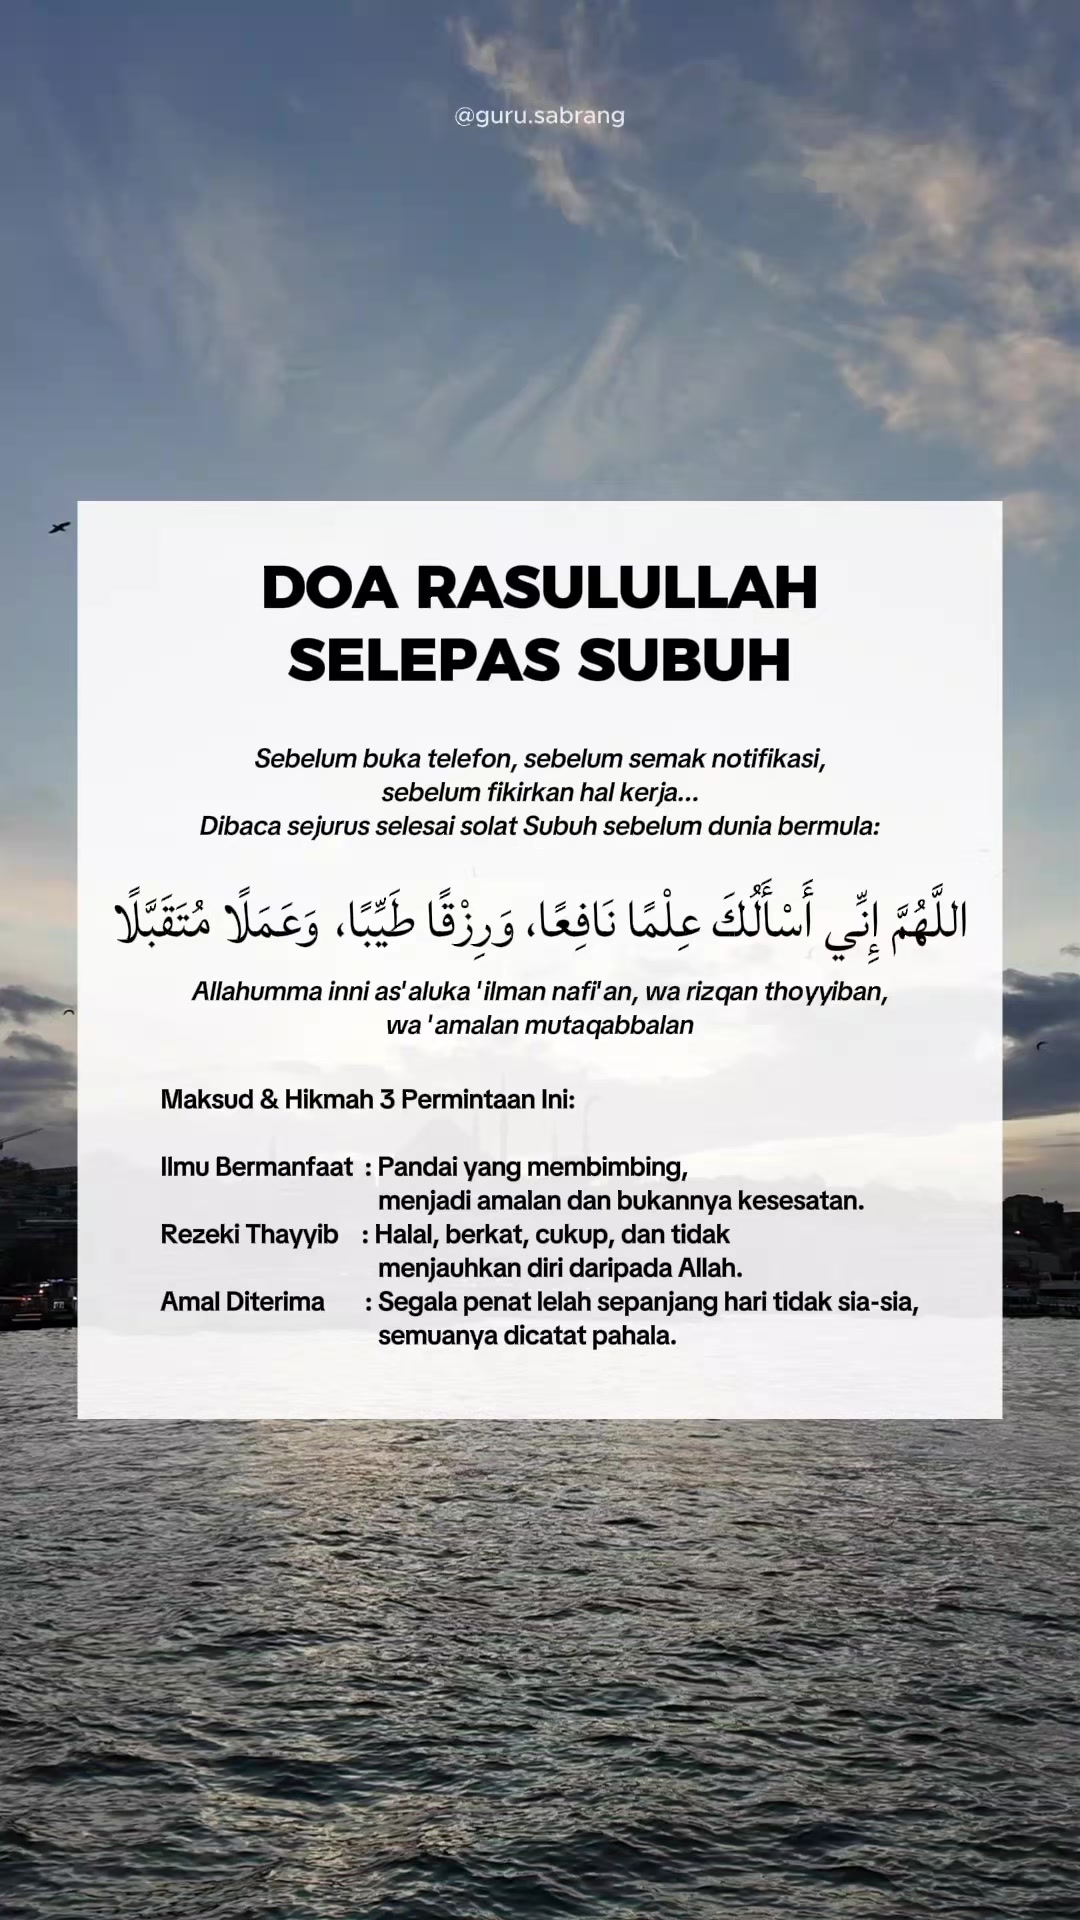 @guru.sabrang
DOA RASULULLAH
SELEPAS SUBUH
Sebelum buka telefon, sebelum semak notifikasi,
sebelum fikirkan hal kerja...
Dibaca sejurus selesai solat Subuh sebelum dunia bermula:
اللَّهُمَّ إِنِّي أَسْأَلُكَ عِلْمًا نَافِعًا، وَرِزْقًا طَيِّبًا، وَعَمَلًا مُتَقَبَّلًا
Allahumma inni as'aluka 'ilman nafi'an, wa rizqan thoyyiban,
wa 'amalan mutaqabbalan
Maksud & Hikmah 3 Permintaan Ini:
Ilmu Bermanfaat : Pandai yang membimbing,
menjadi amalan dan bukannya kesesatan.
Rezeki Thayyib : Halal, berkat, cukup, dan tidak
menjauhkan diri daripada Allah.
Amal Diterima : Segala penat lelah sepanjang hari tidak sia-sia,
semuanya dicatat pahala.